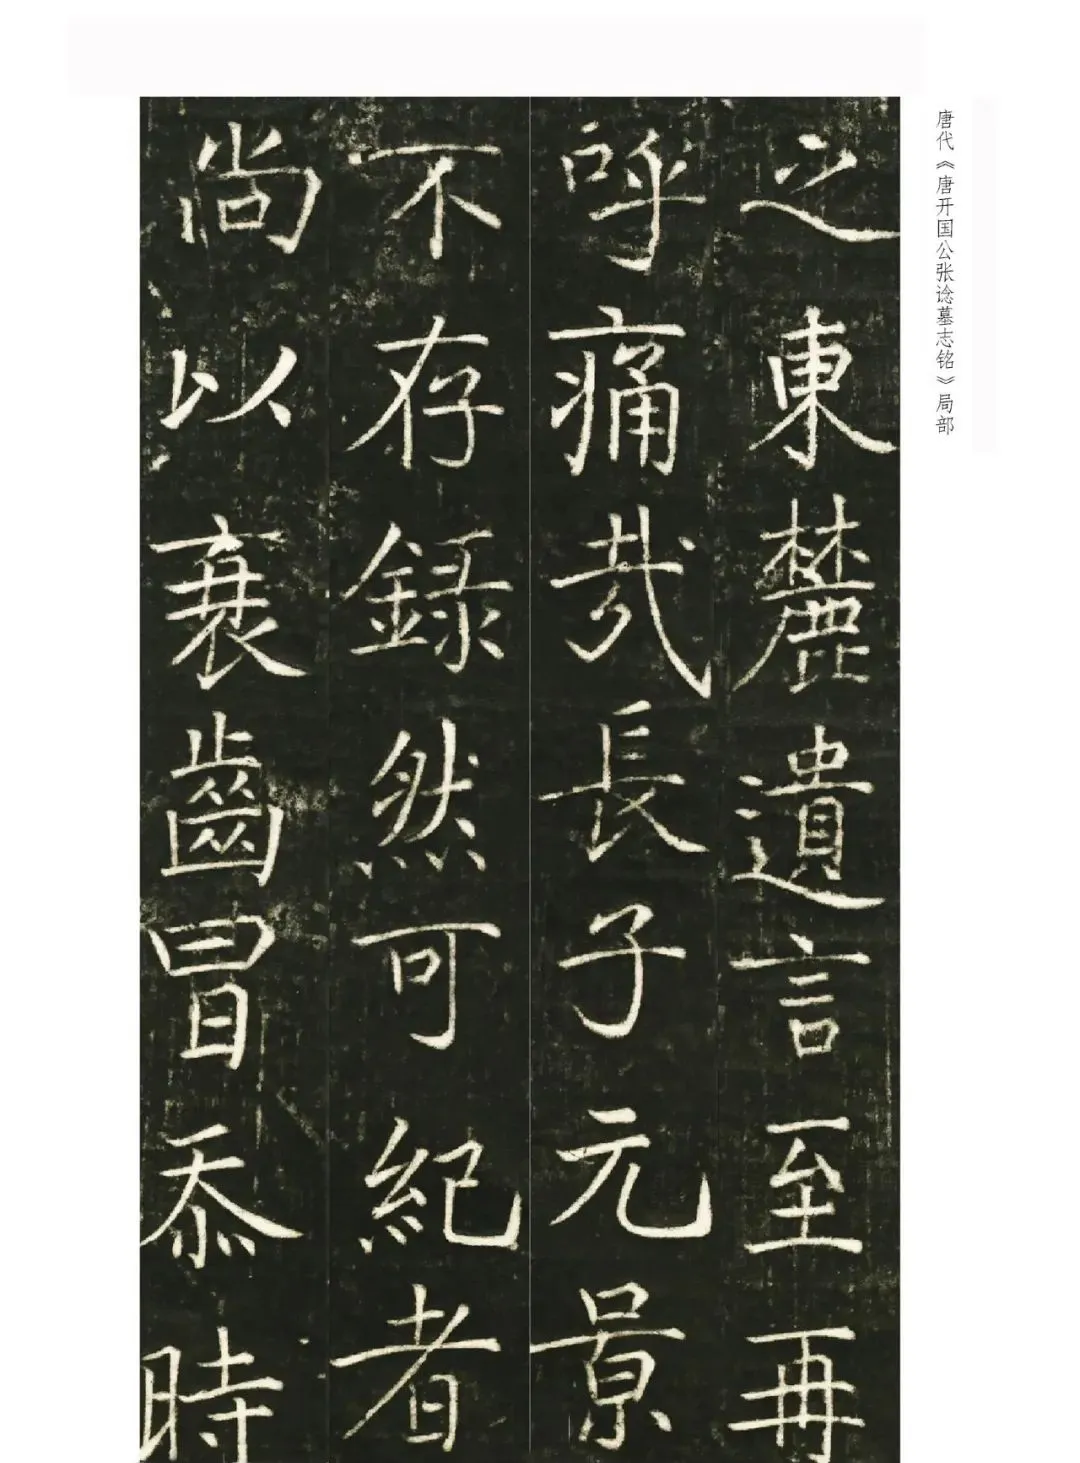 唐代《唐开国公张谂墓志铭》局部
之東麓遺言至再
呼痛㢤長子元景
不存録然可紀者
尚以衰齒冒忝時